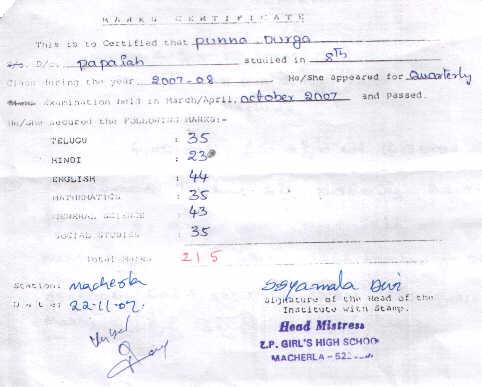 MARKS CERTIFICATE
This is to Certified that punna Durga
S/o. D/o. papaiah studied in 8TH
Class during the year 2007-08 He/She appeared for Quarterly
Examination held in March/April, october 2007 and Passed.
He/She secured the FOLLOWING MARKS:-
TELUGU : 35
HINDI : 23
ENGLISH : 44
MATHEMATICS : 35
GENERAL SCIENCE : 43
SOCIAL STUDIES : 35
Total Marks 215
Station: Macherla
Date: 22-11-07.
SSyamala Devi
Signature of the Head of the
Institute with Stamp.
Head Mistress
Z.P. GIRL'S HIGH SCHOOL
MACHERLA - 522